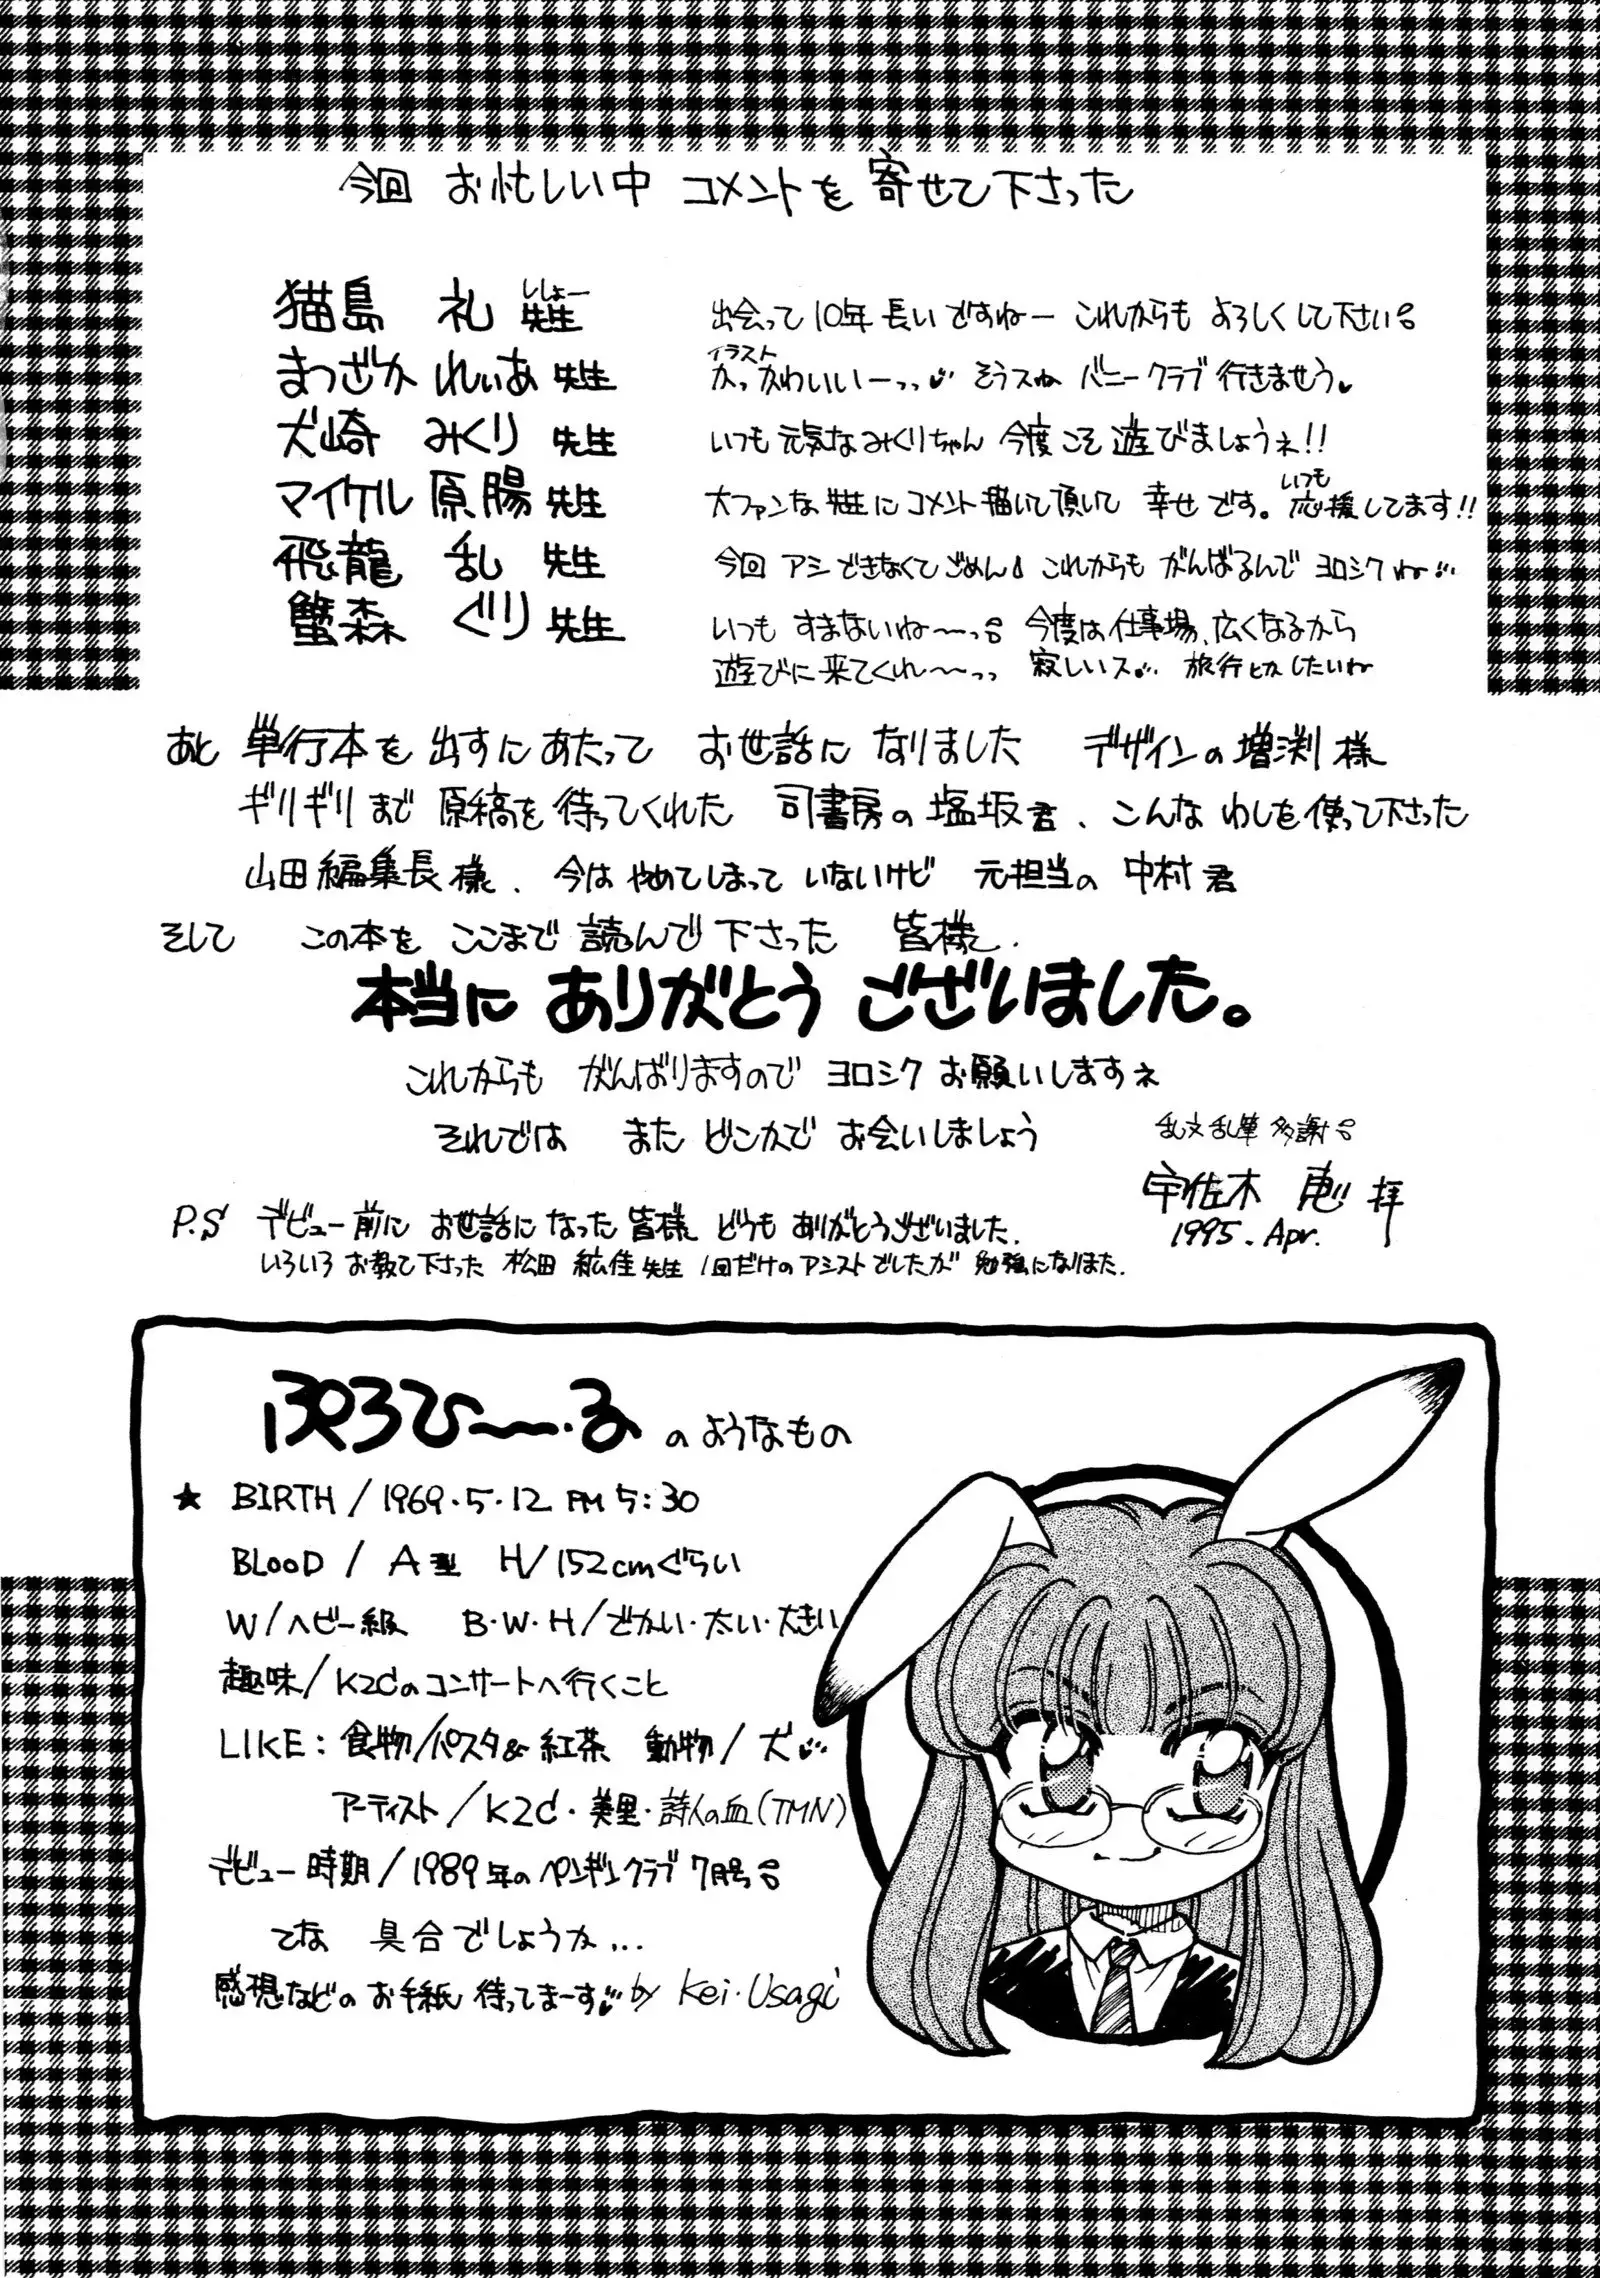 今回 お忙しい中 コメントを 寄せて下さった
猫島 礼 先生 ししょー 出会って 10年 長いですねー これからも よろしくして下さい。
まつざか れいあ 先生 イラスト かっかわいいーっっ♥ そうスね バニークラブ 行きませう♥
犬崎 みくり 先生 いつも 元気な みくりちゃん 今度こそ 遊びましょうネ!!
マイケル 原腸 先生 大ファンな 先生に コメント描いて頂いて 幸せです。 いつも 応援してます!!
飛龍 乱 先生 今回 アシできなくてごめん これからも がんばるんで ヨロシクね
蟹森 ぐり 先生 いつも すまないね〜っ 今度は 仕事場、広くなるから
遊びに来てくれ〜っっ 寂しいス 旅行とかしたいね
あと 単行本を 出すにあたって お世話に なりました デザインの 増渕 様
ギリギリまで 原稿を 待ってくれた 司書房の 塩坂君、こんな わしを 使って下さった
山田編集長様、今は やめてしまって いないけど 元担当の 中村君
そして この本を ここまで 読んで 下さった 皆様
本当に ありがとう ございました。
これからも がんばりますので ヨロシク お願いしますネ
それでは また どこかで お会いしましょう
乱文乱筆 多謝
宇佐木 恵 拝
1995. Apr.
P.S デビュー前に お世話になった 皆様 どうも ありがとうございました.
いろいろ お教て下さった 松田 紘佳 先生 1回だけのアシストでしたが 勉強になりまた.
ぷろひ〜・る のようなもの
★ BIRTH / 1969・5・12 PM 5:30
BLOOD / A型 H/152cmぐらい
W/ヘビー級 B・W・H/でかい・太い・大きい
趣味/K2Cのコンサートへ行くこと
LIKE: 食物/パスタ&紅茶 動物/犬
アーティスト/K2C・美里・詩人の血(TMN)
デビュー時期/1989年のペンギンクラブ7月号
てな 具合でしょうか...
感想などの お手紙 待ってまーす♥ by Kei・Usagi